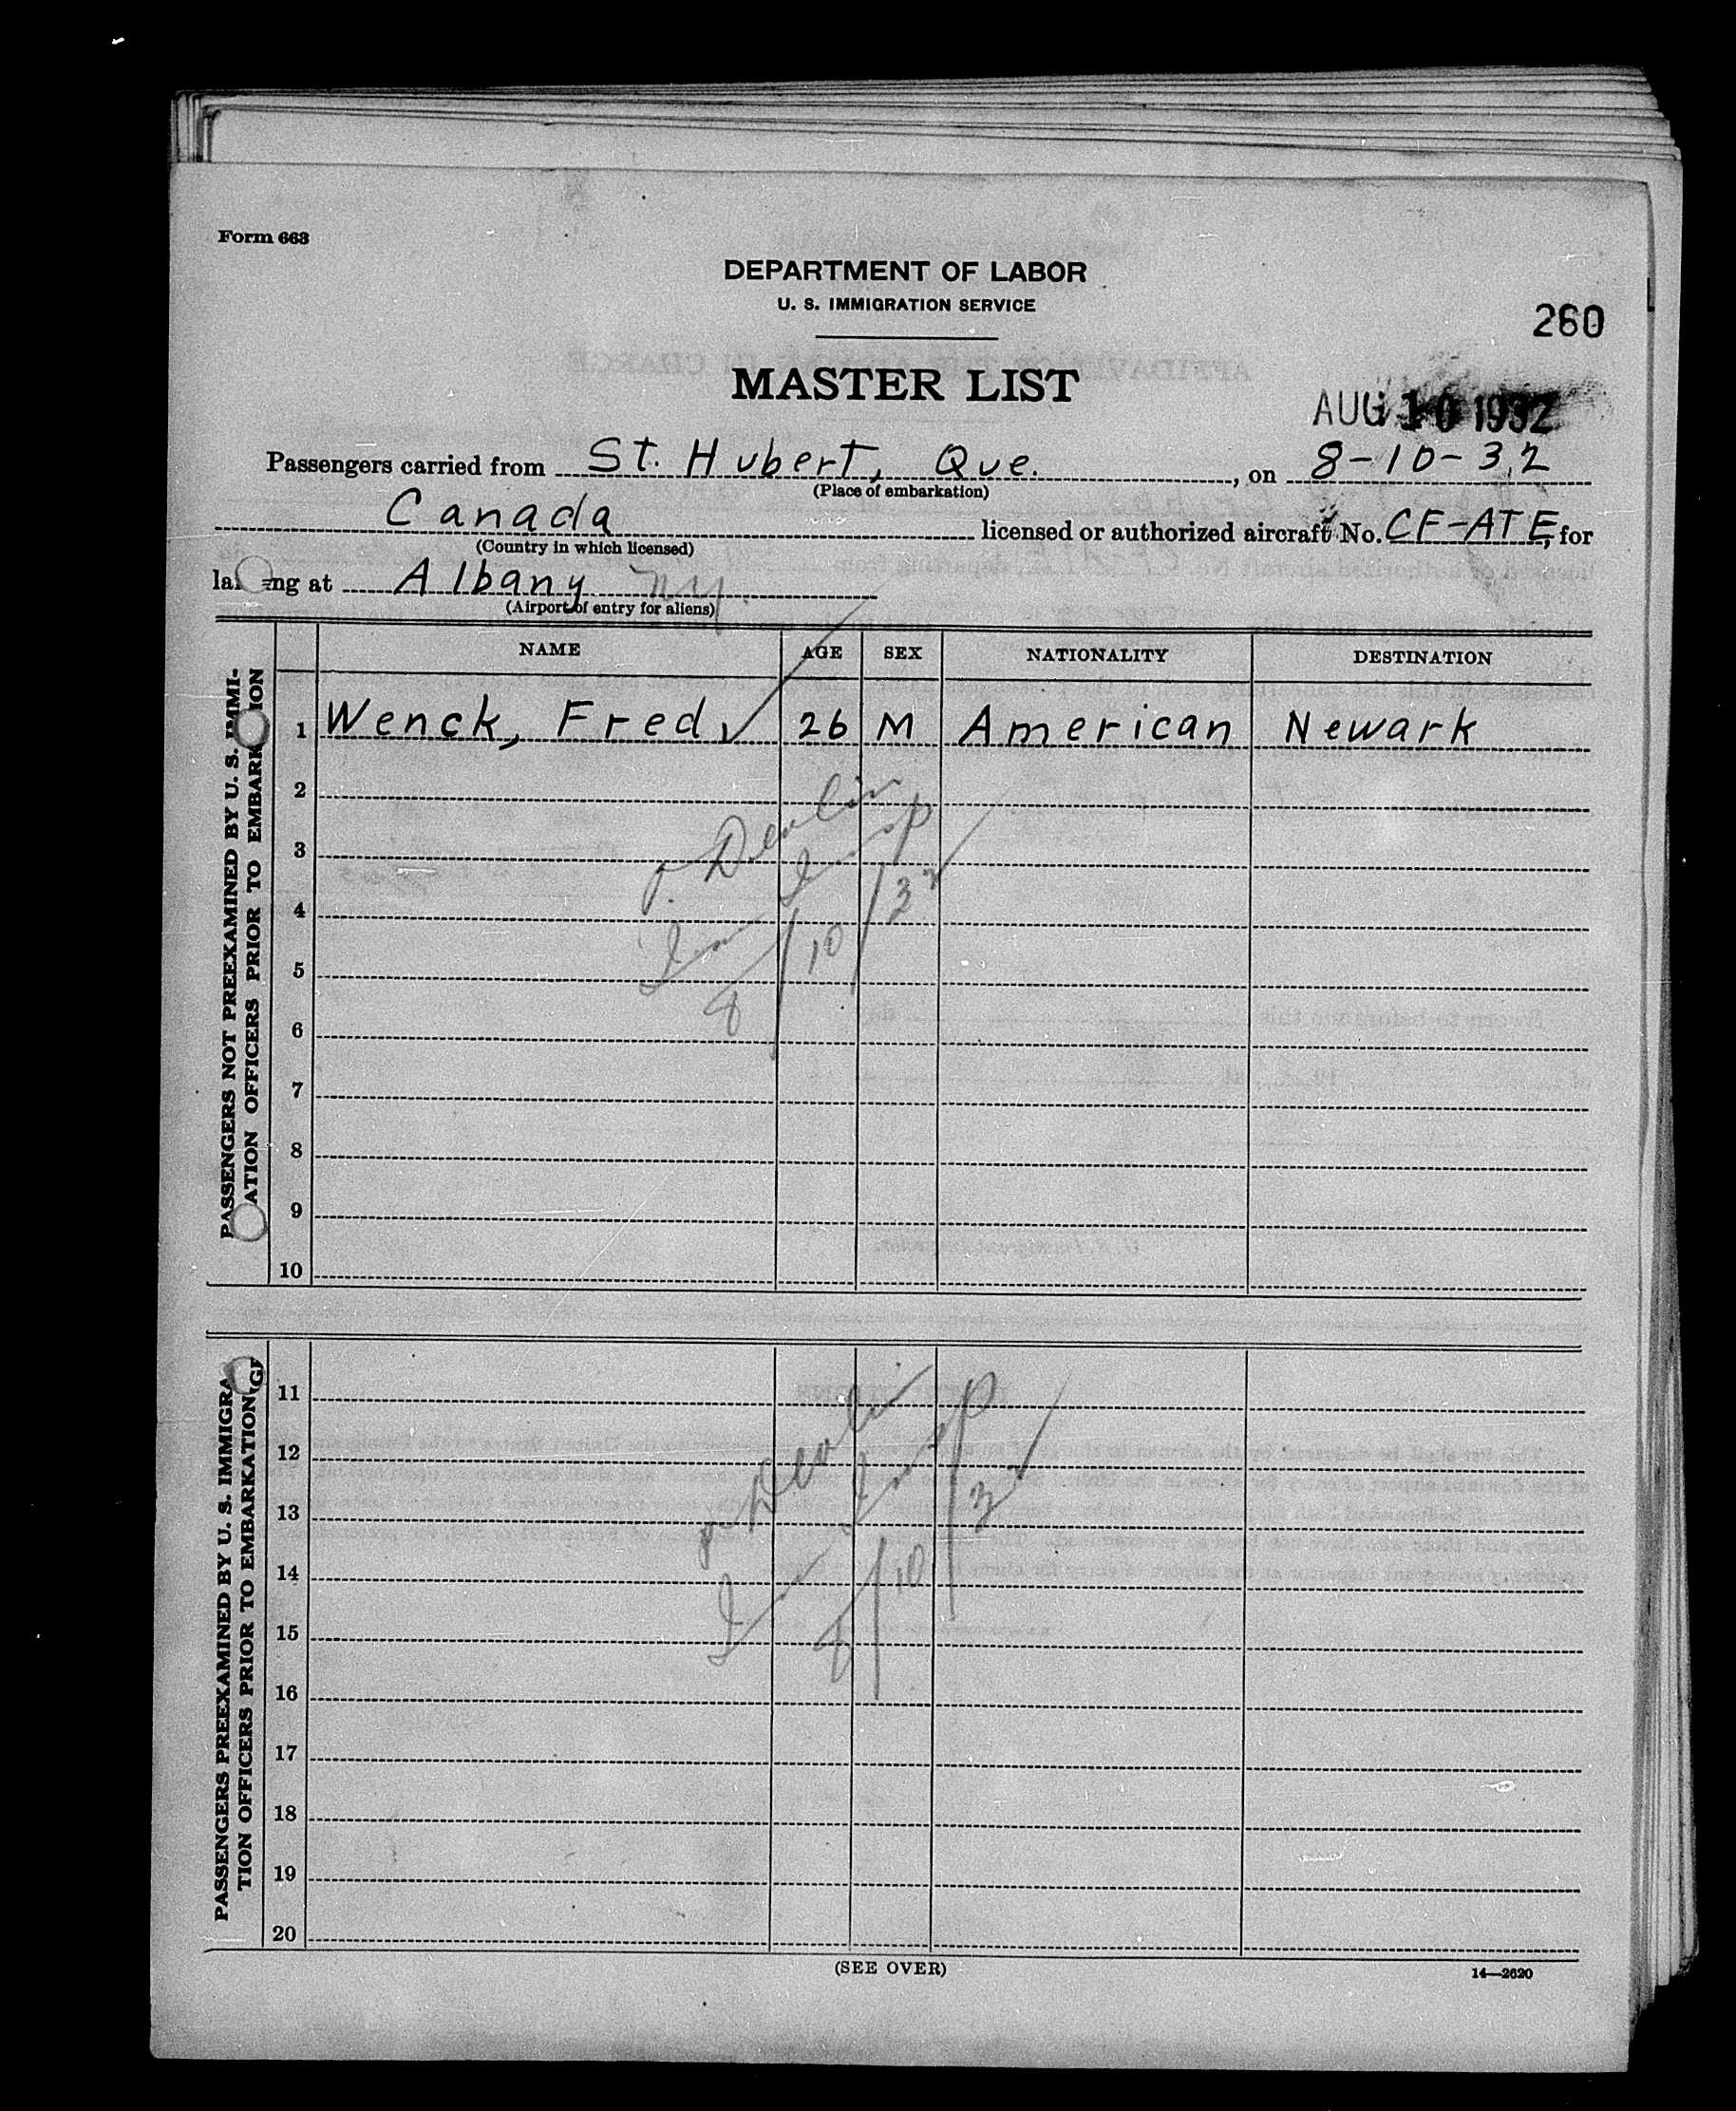 Form 663
DEPARTMENT OF LABOR
U. S. IMMIGRATION SERVICE
260
MASTER LIST
AUG 10 1932
Passengers carried from St. Hubert, Que., on 8-10-32
(Place of embarkation)
Canada licensed or authorized aircraft No. CF-ATE, for
(Country in which licensed)
la ng at Albany NY.
(Airport of entry for aliens)
PASSENGERS NOT PREEXAMINED BY U. S. IMMI-
ATION OFFICERS PRIOR TO EMBARK ION
NAME AGE SEX NATIONALITY DESTINATION
1 Wenck, Fred ✓ 26 M American Newark
2
3
4
5
6
7
8
9
10
Devlin
Imm Insp
8/10/32
PASSENGERS PREEXAMINED BY U. S. IMMIGRA
TION OFFICERS PRIOR TO EMBARKATION
11
12
13
14
15
16
17
18
19
20
Devlin
Imm Insp
8/10/32
(SEE OVER)
14—2620